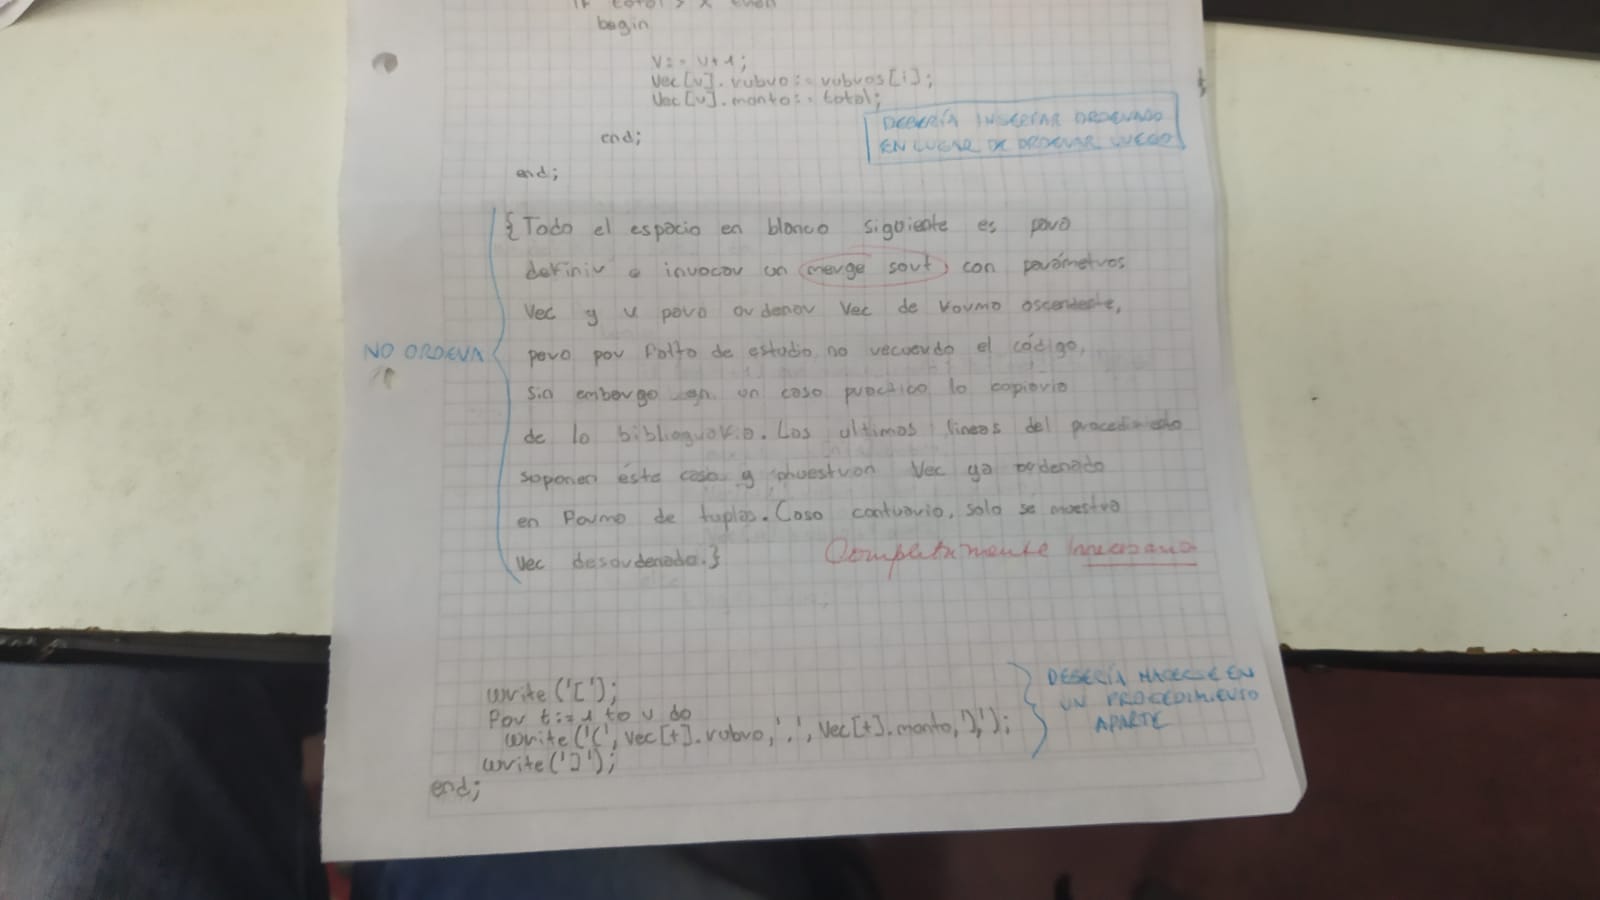 if total > x then
begin
v:= v+1;
Vec[v].rubro:= rubros[i];
Vec[v].monto:= total;
DEBERÍA INSERTAR ORDENADO
EN LUGAR DE ORDENAR LUEGO
end;
end;
{Todo el espacio en blanco siguiente es para
definir e invocar un merge sort con parámetros
Vec y v para ordenar Vec de forma ascendente,
NO ORDENA
pero por falta de estudio no recuerdo el código,
sin embargo en un caso practico lo copiaría
de la bibliografía. Las ultimas lineas del procedimiento
suponen éste caso y muestran Vec ya ordenado
en forma de tuplas. Caso contrario, solo se muestra
vec desordenado.}
Completamente innecesario
write('[');
For t:=1 to v do
write('(', Vec[t].rubro,',', Vec[t].monto,'),');
write(']');
end;
DEBERÍA HACERSE EN
UN PROCEDIMIENTO
APARTE